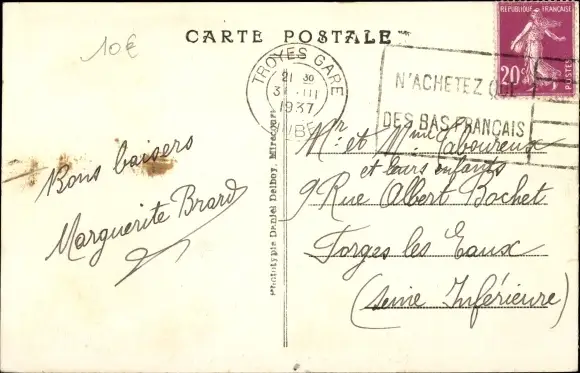 10€
CARTE POSTALE
REPUBLIQUE FRANÇAISE
20c
POSTES
TROYES GARE
21 30
3 III
1937
AUBE
N'ACHETEZ QUE
DES BAS FRANÇAIS
Bons baisers
Marguerite Brard
Phototypie Daniel Delboy, Mirecourt
Mr et Mme Taboureux
et leurs enfants
9 Rue Albert Bochet
Forges les Eaux
(Seine Inférieure)